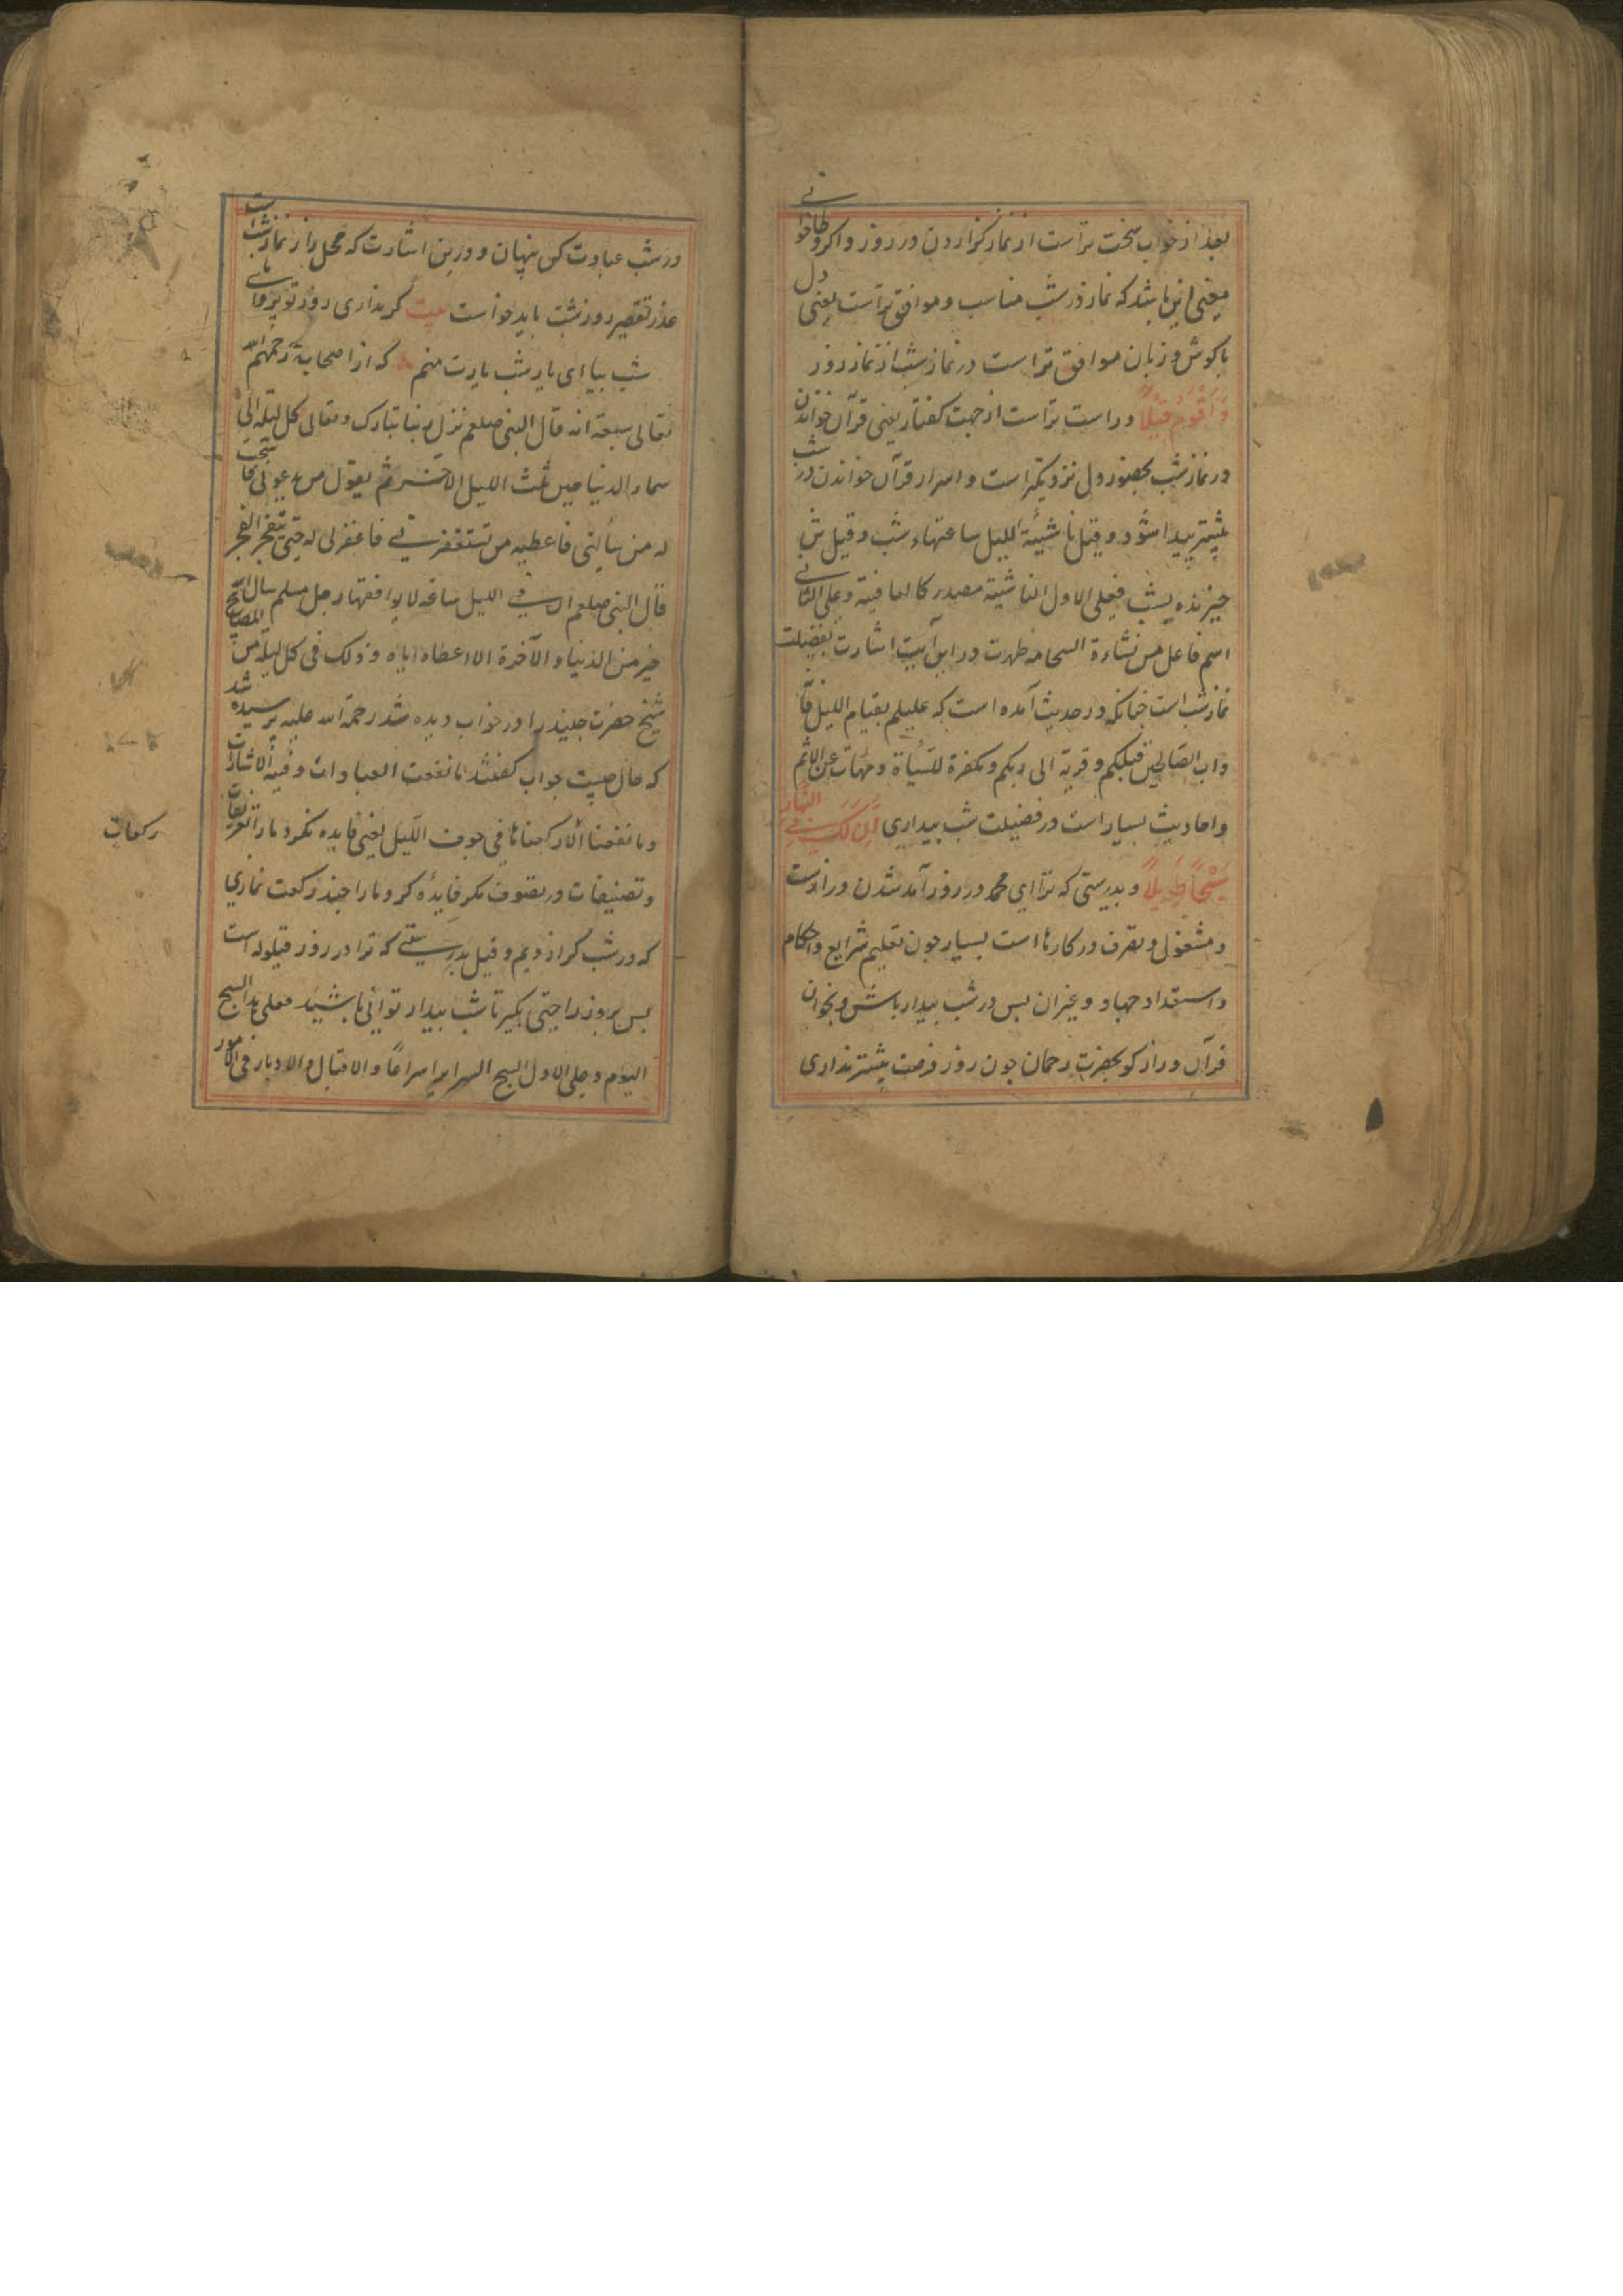 بعد از خواب سخت تر است از نماز کزاردن در روز و اکر وطا خوانی
معنی این باشد که نماز در شب مناسب و موافق تر است یعنی دل
با کوش و زبان موافق تر است در نماز شب از نماز روز
وَاَقْوَمُ قِیْلًا و راست تر است از جهت کفتار یعنی قرآن خواندن
در نماز شب بحضور دل نزدیکتر است و اسرار قرآن خواندن در شب
بیشتر پیدا شود و قیل ناشئة اللیل ساعتهاء شب و قیل
خیزنده بشب فعلی الاول الناشیة مصدر کالعافیة وعلی الثانی
اسم فاعل من نشاءة السحابه ظهرت در این آیت اشارت بفضیلت
نماز شب است چنانکه در حدیث آمده است که علیکم بقیام اللیل فا
داب الصالحین قبلکم و قربة الی ربکم و مکفرة للسیأة و منهات عن الاثم
و احادیث بسیار است در فضیلت شب بیداری اِنَّ لَکَ فِی النَّهَارِ
سَبْحًا طَوِیلًا و بدرستی که ترا ای محمد در روز آمد شدن دراز است
و مشغول و تصرف در کارها است بسیار چون تعلیم شرایع و احکام
و استعداد جهاد و غیر ان بس در شب بیدار باش و بخوان
قرآن و راز کو بحضرت رحمان چون روز فرصت بیشتر نداری
در شب عبادت کن پنهان و درین اشارت که محل راز نماز شب است
عذر تقصیر روز شب باید خواست بیت کر نداری روز تو پروای
شب بیا ای یار شب یارت منم که از اصحابه رحمهم الله
تعالی سبعة انه قال النبی صلعم نزل ربنا تبارک وتعالی کل لیلة الی
سماء الدنیا حین ثلث اللیل الاخر ثم یقول من یدعونی فاستجب
له من سألنی فاعطیه من تستغفرنی فاغفر لی له حتی تنفجر الفجر
قال النبی صلعم ان فی اللیل ساعة لا یوافقها رجل مسلم سال الله
خیر من الدنیا والآخرة الا اعطاه ایاه و ذلک فی کل لیلة من المصابیح
شیخ حضرت جنید را در خواب دیده شد رحمة الله علیه پرسیده شد
که حال چیست جواب کفتند ما نفعت العبادات و فنیه الاشارات
وما نفعنا الا رکعناها فی جوف اللیل یعنی فایده نکرد ما را
و تصنیفات در تصوف مکر فایده کرد ما را چند رکعت نمازی
رکعات
که در شب کزاردیم و قیل بدرستی که ترا در روز قیلوله است
بس بروز راحتی بکیر تا شب بیدار توانی باشید فعلی هذا السبح
الیوم و علی الاول السبح السرایر اسراعًا و الاقبال والادبار فی الامور